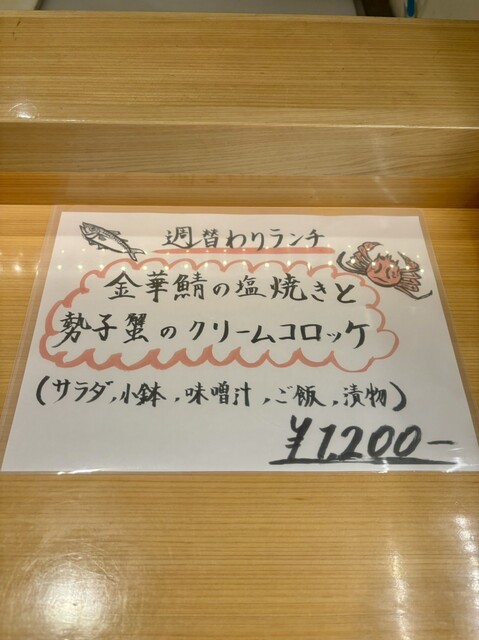 週替わりランチ
金華鯖の塩焼きと
勢子蟹のクリームコロッケ
(サラダ,小鉢,味噌汁,ご飯,漬物)
¥1,200-